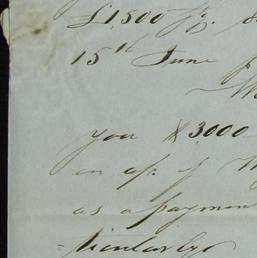 £1500
15th June
you $3000
on a/c of
as a paymen
-ticularly